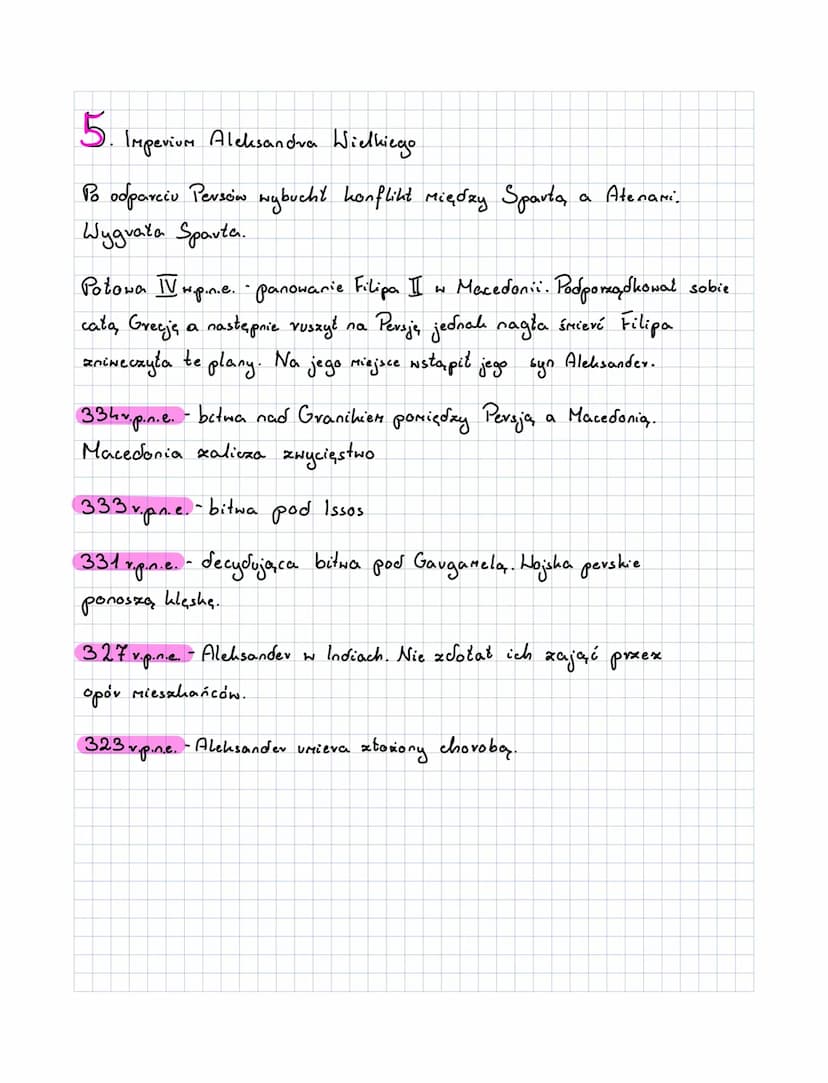 5. Imperium Aleksandra Wielkiego
Po odparciu Persów wybuchł konflikt między Spartą a Atenami.
Wygrała Sparta.
Połowa IV w.p.n.e. - panowanie Filipa II w Macedonii. Podporządkował sobie
całą Grecję a następnie ruszył na Persję jednak nagła śmierć Filipa
zniweczyła te plany. Na jego miejsce wstąpił jego syn Aleksander.
334r.p.n.e. - bitwa nad Granikiem pomiędzy Persją a Macedonią.
Macedonia zalicza zwycięstwo
333 r.p.n.e. - bitwa pod Issos
331 r.p.n.e. - decydująca bitwa pod Gaugamelą. Wojska perskie
ponoszą klęskę.
327 r.p.n.e - Aleksander w Indiach. Nie zdołał ich zająć przez
opór mieszkańców.
323 r.p.n.e. - Aleksander umiera złożony chorobą.